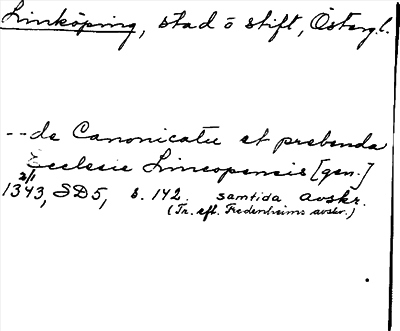 Linköping, stad o stift, Österg.l.
-- de Canonicatu et prebenda
Ecclesie Lincopensis [gen.]
2/1
1343, SD5, s. 142. samtida avskr.
(Tr. efl. Fredenheims avskr.)